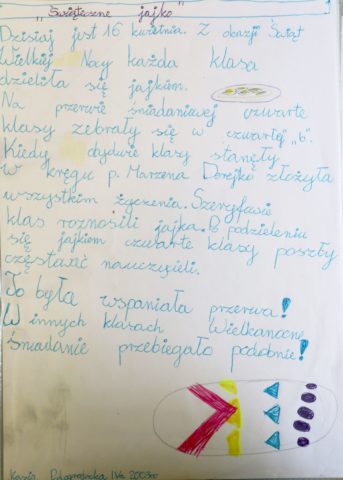 „Świąteczne jajko"
Dzisiaj jest 16 kwietnia. Z okazji Świąt
Wielkiej Nocy każda klasa
dzieliła się jajkiem.
Na przerwie śniadaniowej czwarte
klasy zebrały się w czwartej „b".
Kiedy obydwie klasy stanęły
w kręgu p. Marzena Dorejko złożyła
wszystkim życzenia. Szeryfowie
klas roznosili jajka. Po podzieleniu
się jajkiem czwarte klasy poszły
częstować nauczycieli.
To była wspaniała przerwa!
W innych klasach Wielkanocne
Śniadanie przebiegało podobnie!
Kasia IVa 2003r.